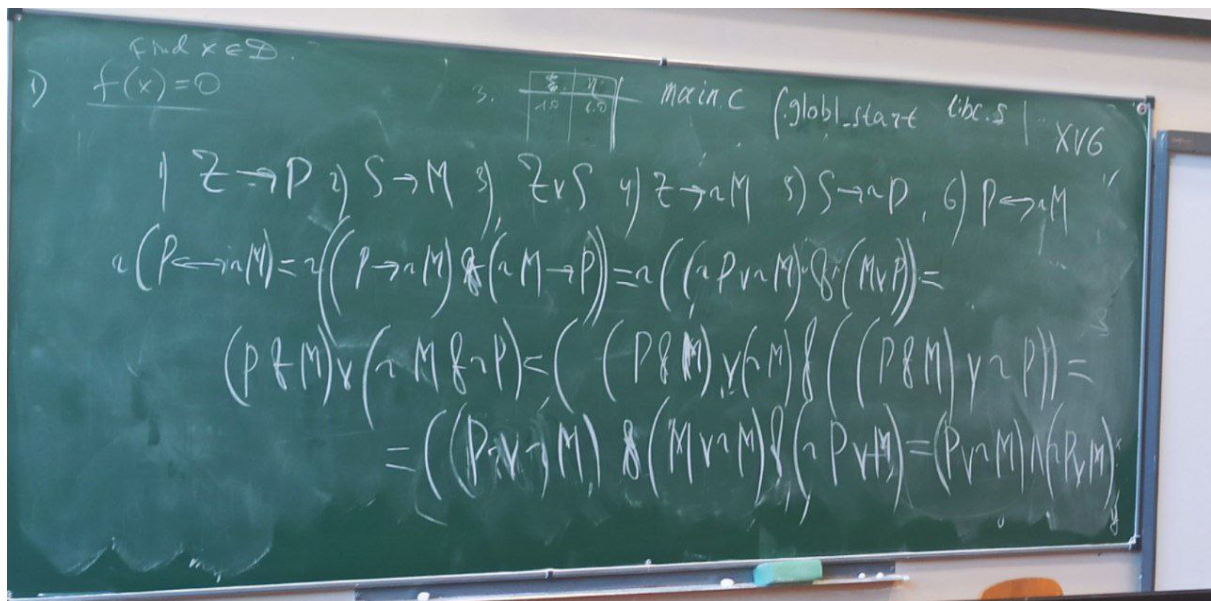 Find x ∈ D.
1) f(x)=0
3. ξ η
1.0 1.0
main.c (.globl_start libc.s | XVG
1) Z→P 2) S→M 3) Z∨S 4) Z→~M 5) S→~P, 6) P↔~M
~(P↔~M)=~((P→~M)&(~M→P))=~((~P∨~M)&(M∨P))=
(P&M)∨(~M&~P)=((P&M)∨(~M)&((P&M)∨~P))=
=((P∨~M) &(M∨~M)&(~P∨M)=(P∨~M)∧(~P∨M)